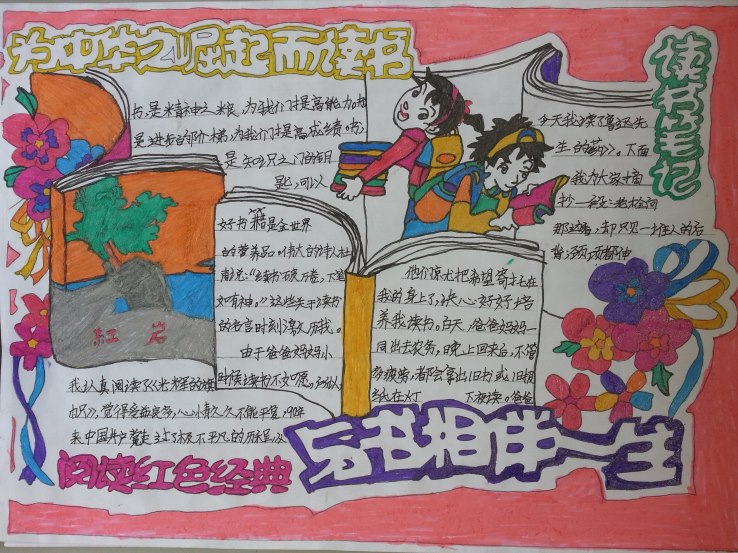 为中华之崛起而读书
读书笔记
书,是精神之粮,为我们提高能力。书
是进步的阶梯,为我们提高成绩。书,
是知识之门的钥
匙,可以
今天我读了鲁迅先
生的《药》。下面
我为大家
抄一段:老栓
那边看,却只见一堆人的后
背;颈项都伸
好书籍是全世界
的营养品。伟大的诗人杜
甫说:“读书破万卷,下笔
如有神。”这些关于读书
的名言时刻激励我。
由于爸爸妈妈小
时候读书不如愿。
他们惊尤把希望寄托在
我的身上了,决心好好培
养我读书。白天,爸爸妈妈一
同出去农务,晚上回来后,不管
多疲劳,都会拿出旧书或旧报
纸在灯 下夜读。爸爸
红岩
我认真阅读了《光辉的旗
帜》,觉得受益良多,心情久久不能平复,90年
来中国共产党走过了极不平凡的历程,
阅读红色经典
与书相伴一生